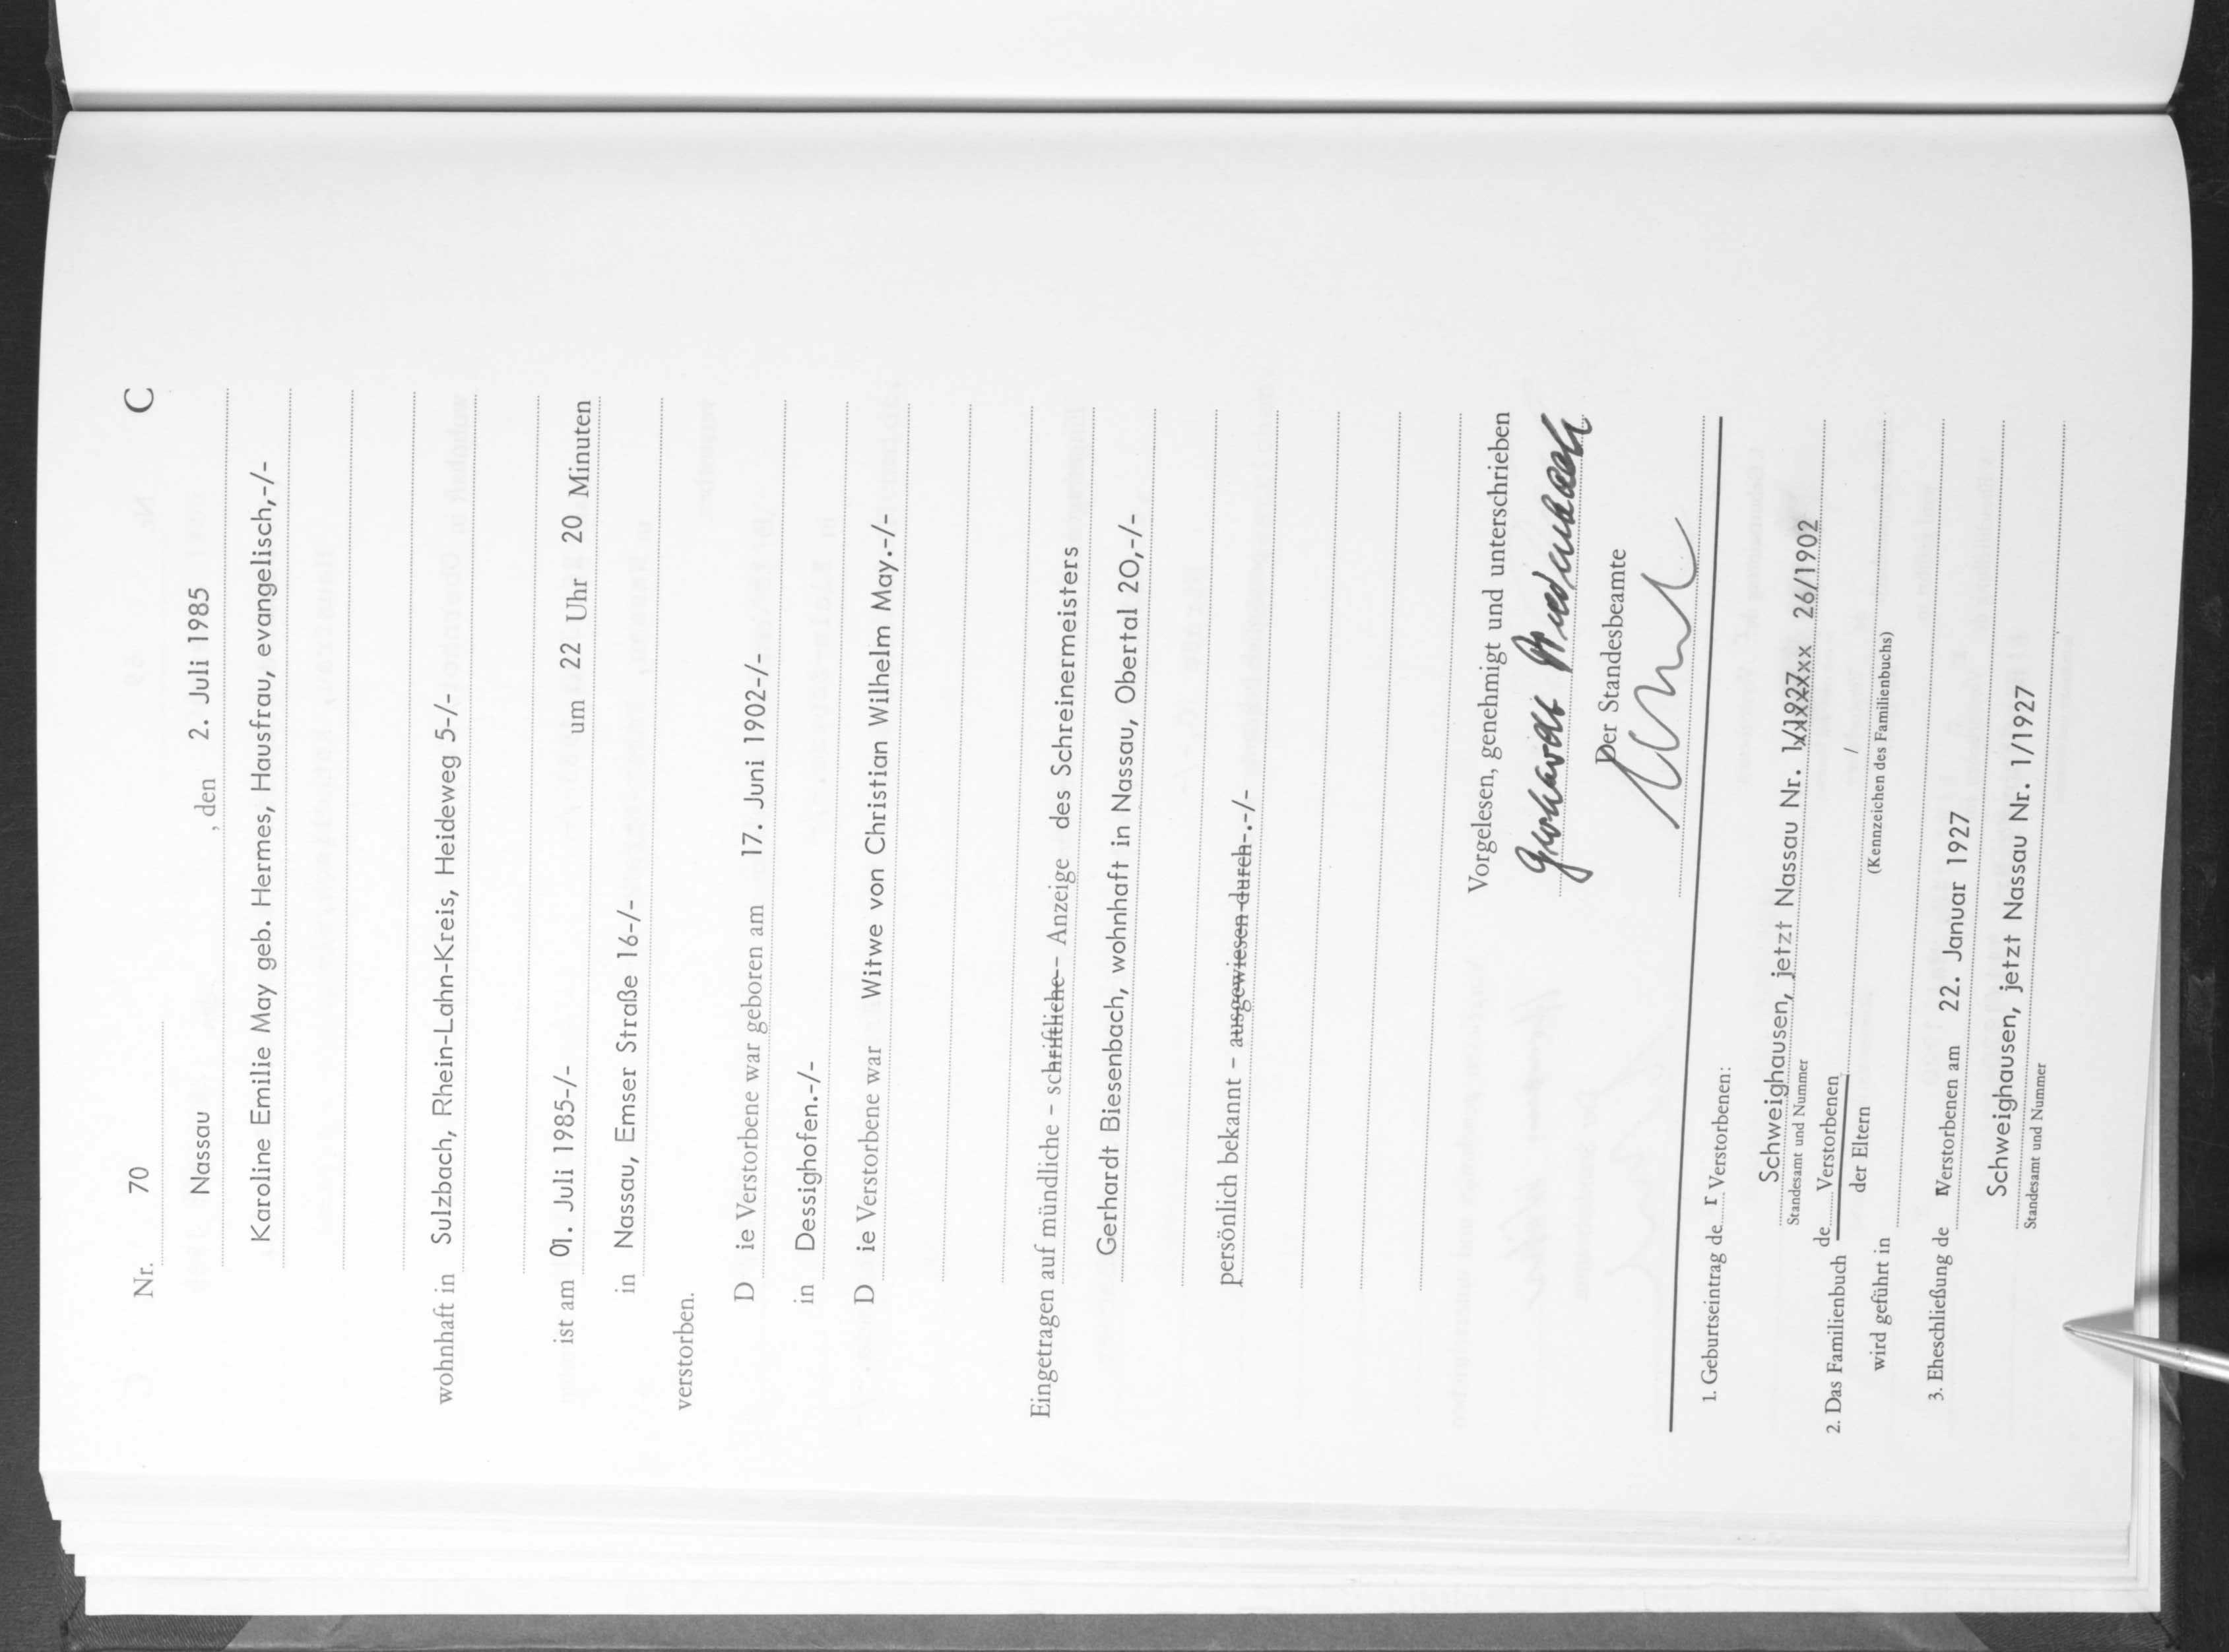 Nr. 70 C
Nassau , den 2. Juli 1985
Karoline Emilie May geb. Hermes, Hausfrau, evangelisch,-/-
wohnhaft in Sulzbach, Rhein-Lahn-Kreis, Heideweg 5-/-
ist am 01. Juli 1985-/- um 22 Uhr 20 Minuten
in Nassau, Emser Straße 16-/-
verstorben.
D ie Verstorbene war geboren am 17. Juni 1902-/-
in Dessighofen.-/-
D ie Verstorbene war Witwe von Christian Wilhelm May.-/-
Eingetragen auf mündliche - schriftliche - Anzeige des Schreinermeisters
Gerhardt Biesenbach, wohnhaft in Nassau, Obertal 20,-/-
persönlich bekannt - ausgewiesen durch-.-/-
Vorgelesen, genehmigt und unterschrieben
Gerhardt Biesenbach
Der Standesbeamte
1. Geburtseintrag de r Verstorbenen:
Schweighausen, jetzt Nassau Nr. 1/1927xx 26/1902
Standesamt und Nummer
2. Das Familienbuch de Verstorbenen /
der Eltern
wird geführt in (Kennzeichen des Familienbuchs)
3. Eheschließung de r Verstorbenen am 22. Januar 1927
Schweighausen, jetzt Nassau Nr. 1/1927
Standesamt und Nummer